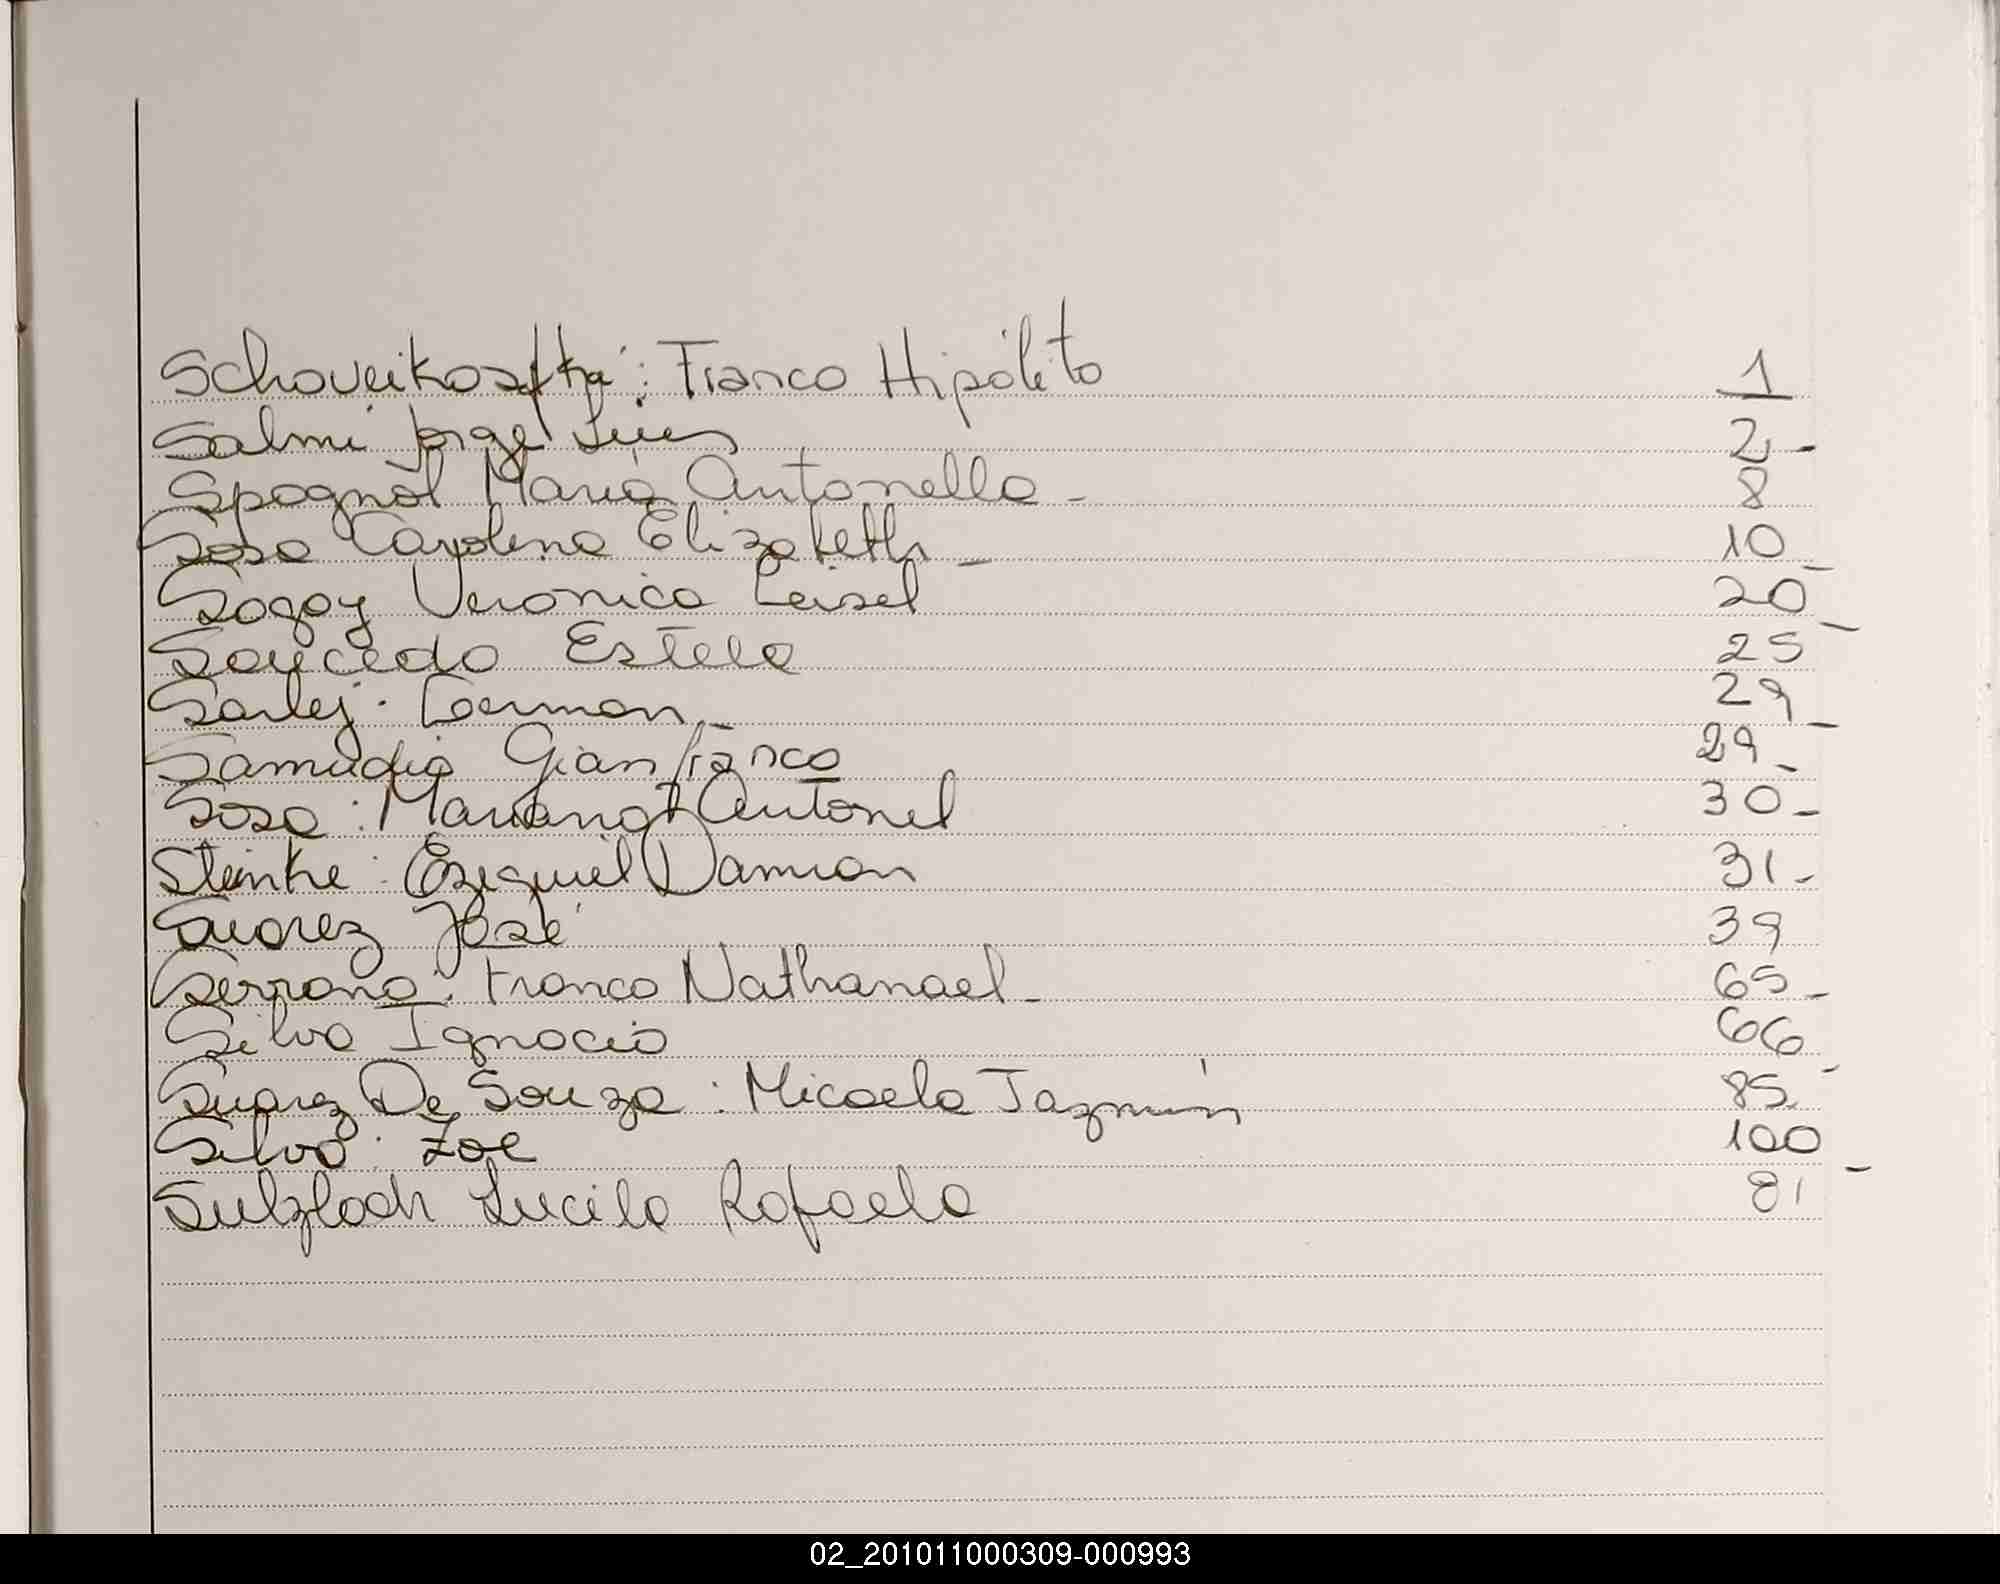 Schoveikoska: Franco Hipólito 1
Salmi Jorge Luis 2-
Spagnol Maria Antonella - 8
Sosa Carolina Elizabeth - 10-
Sogay Veronica Leisel 20-
Saucedo Estela 25
Sarlej. German - 29-
Samudio Gianfranco 29-
Sosa: Mariano Antonel 30-
Steinke: Ezequiel Damian 31-
Suarez José 39
Serrano: Franco Nathanael - 65-
Silva Ignacio 66-
Suarez De Souza: Micaela Jazmín 85
Silva: Zoe 100-
Sulzbach Lucila Rafaela 81
02_201011000309-000993